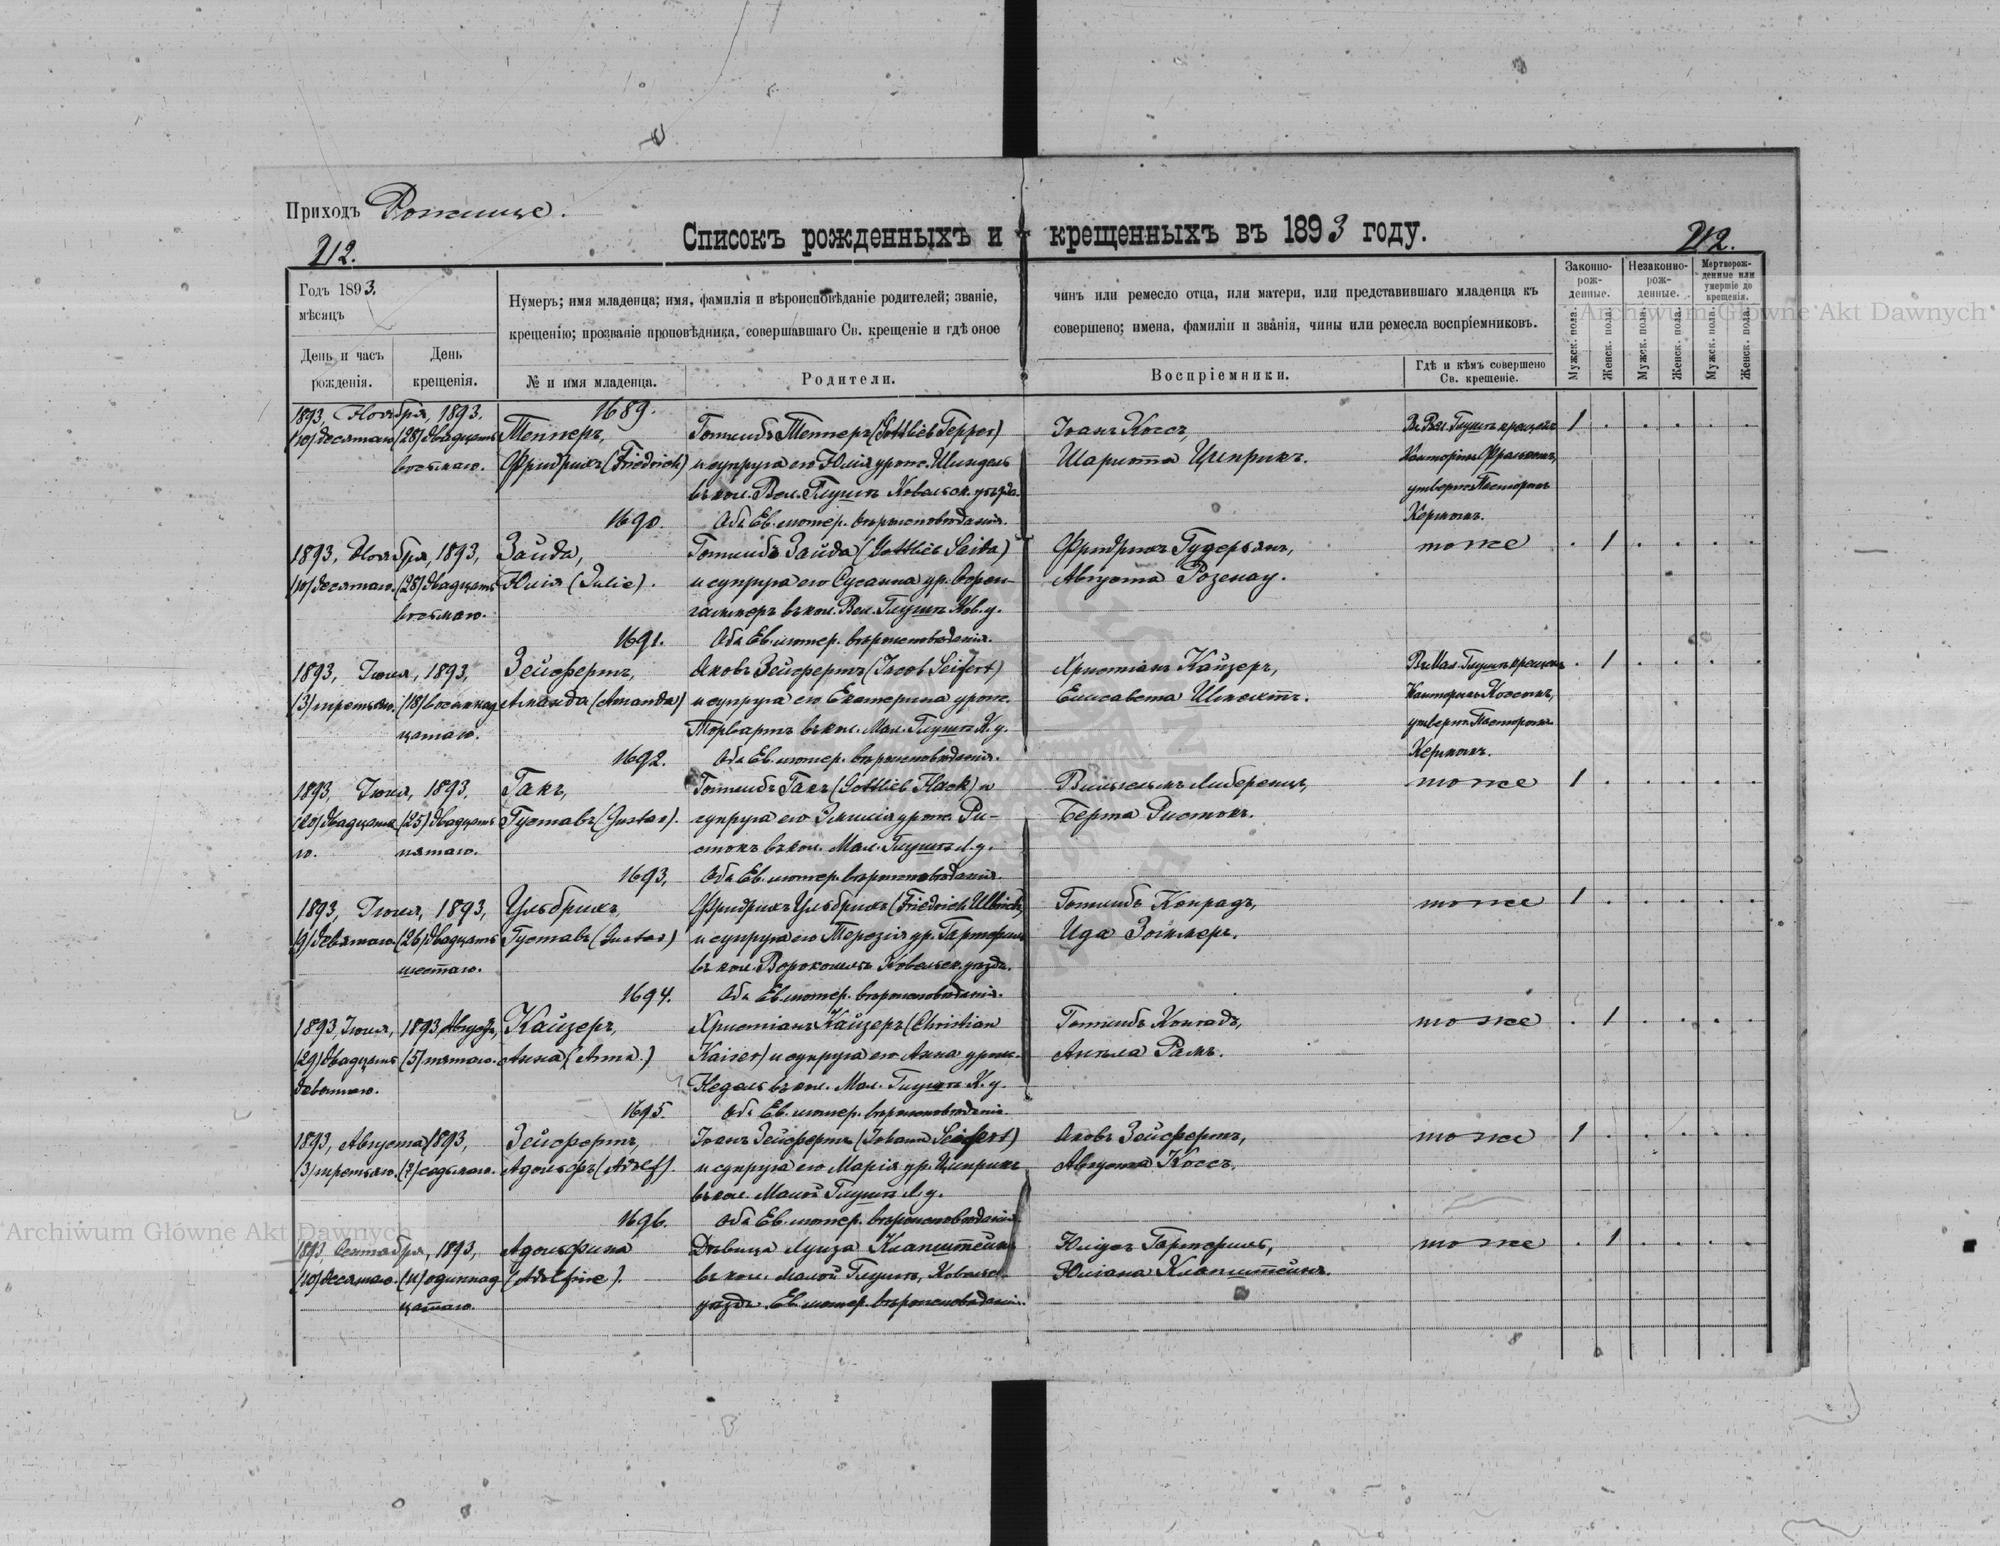 Приходъ Рожище.
212.
Списокъ рожденныхъ и крещенныхъ въ 1893 году.
212.
Годъ 1893.
мѣсяцъ
День и часъ рожденія.
День крещенія.
Нумеръ; имя младенца; имя, фамилія и вѣроисповѣданіе родителей; званіе, чинъ или ремесло отца, или матери, или представившаго младенца къ
крещенію; прозваніе проповѣдника, совершавшаго Св. крещеніе и гдѣ оное совершено; имена, фамиліи и званія, чины или ремесла воспріемниковъ.
№ и имя младенца.
Родители.
Воспріемники.
Гдѣ и кѣмъ совершено Св. крещеніе.
Законно-рож-денные.
Незаконно-рож-денные.
Мертворож-денные или умершіе до крещенія.
Мужск. пола.
Женск. пола.
Мужск. пола.
Женск. пола.
Мужск. пола.
Женск. пола.
1689.
1893, Ноября, 1893.
(10) десятаго (28) двадцать Тепперъ, Готлибъ Тепперъ (Gottlieb Tepper) Іоанъ Коссъ, Въ Вел. Глушѣ крещенъ 1
восьмаго. Фридрихъ (Friedrich) и супруга его Юлія урож. Шиндель Шарлотта Цисприхъ. Канторомъ
въ кол. Вел. Глушѣ Ковельск. уѣзда утвержд. Пасторомъ
1690. Оба Ев. лютер. вѣроисповѣданія. Керномъ.
1893, Ноября, 1893, Зайда, Готлибъ Зайда (Gottlieb Saida) Фридрихъ Гудерьянъ, тоже 1
(10) десятаго. (28) двадцать Юлія (Julie). и супруга его Сусанна ур. Август­а Розенау.
восьмаго. въ кол. Вел. Глушѣ Ков. у.
1691. Оба Ев. лютер. вѣроисповѣданія.
1893, Іюля, 1893, Зейфертъ, Яковъ Зейфертъ (Jacob Seifert) Христіанъ Кайзеръ, Въ Мал. Глушѣ крещена 1
(3) третьяго, (18) восемнад Аманда (Amanda) и супруга его Екатерина урож. Елисавета Канторомъ Коссомъ,
цатаго. въ кол. Мал. Глушѣ К. у. утвержд. Пасторомъ
1692. Оба Ев. лютер. вѣроисповѣданія. Керномъ.
1893, Іюля, 1893, Гакъ, Готлибъ Гакъ (Gottlieb Hack) и Вильгельмъ тоже 1
(20) двадцата (25) двадцать Густавъ (Gustav). супруга его Эмилія урож. Ри- Берта Ристокъ.
го. пятаго. стокъ въ кол. Мал. Глушѣ К. у.
1693, Оба Ев. лютер. вѣроисповѣданія.
1893, Іюля, 1893, Ульбрихъ, Фридрихъ Ульбрихъ (Friedrich Ulbrich) Готлибъ Конрадъ, тоже 1
(9) девятаго (26) двадцать Густавъ (Gustav) и супруга его Терезія ур. Ида
шестаго. въ кол. Ковельск. уѣзда.
1694. Оба Ев. лютер. вѣроисповѣданія.
1893, Іюля, 1893, Августа, Кайзеръ, Христіанъ Кайзеръ (Christian Готлибъ Конрадъ, тоже 1
(29) двадцать (5) пятаго. Анна (Anna.) Kaiser) и супруга его Анна урож.
девятаго. въ кол. Мал. Глушѣ К. у.
1695. Оба Ев. лютер. вѣроисповѣданія.
1893, Августа, 1893, Зейфертъ, Іоанъ Зейфертъ (Johann Seifert) Яковъ Зейфертъ, тоже 1
(3) третьяго. (7) седьмаго. Адольфъ (Adolf). и супруга его Марія ур. Августа Коссъ.
въ кол. Малой Глушѣ К. у.
1696. Оба Ев. лютер. вѣроисповѣданія.
1893, Сентября, 1893, Адольфина Дѣвица Луиза Клапштейнъ Юліусъ тоже 1
(10) десятаго (11) одиннад (Adolfine). въ кол. Малой Глушѣ, Ковельск. Юліана Клапштейнъ.
цатаго. уѣзда Ев. лютер. вѣроисповѣданія.
Archiwum Główne Akt Dawnych
Archiwum Główne Akt Dawnych